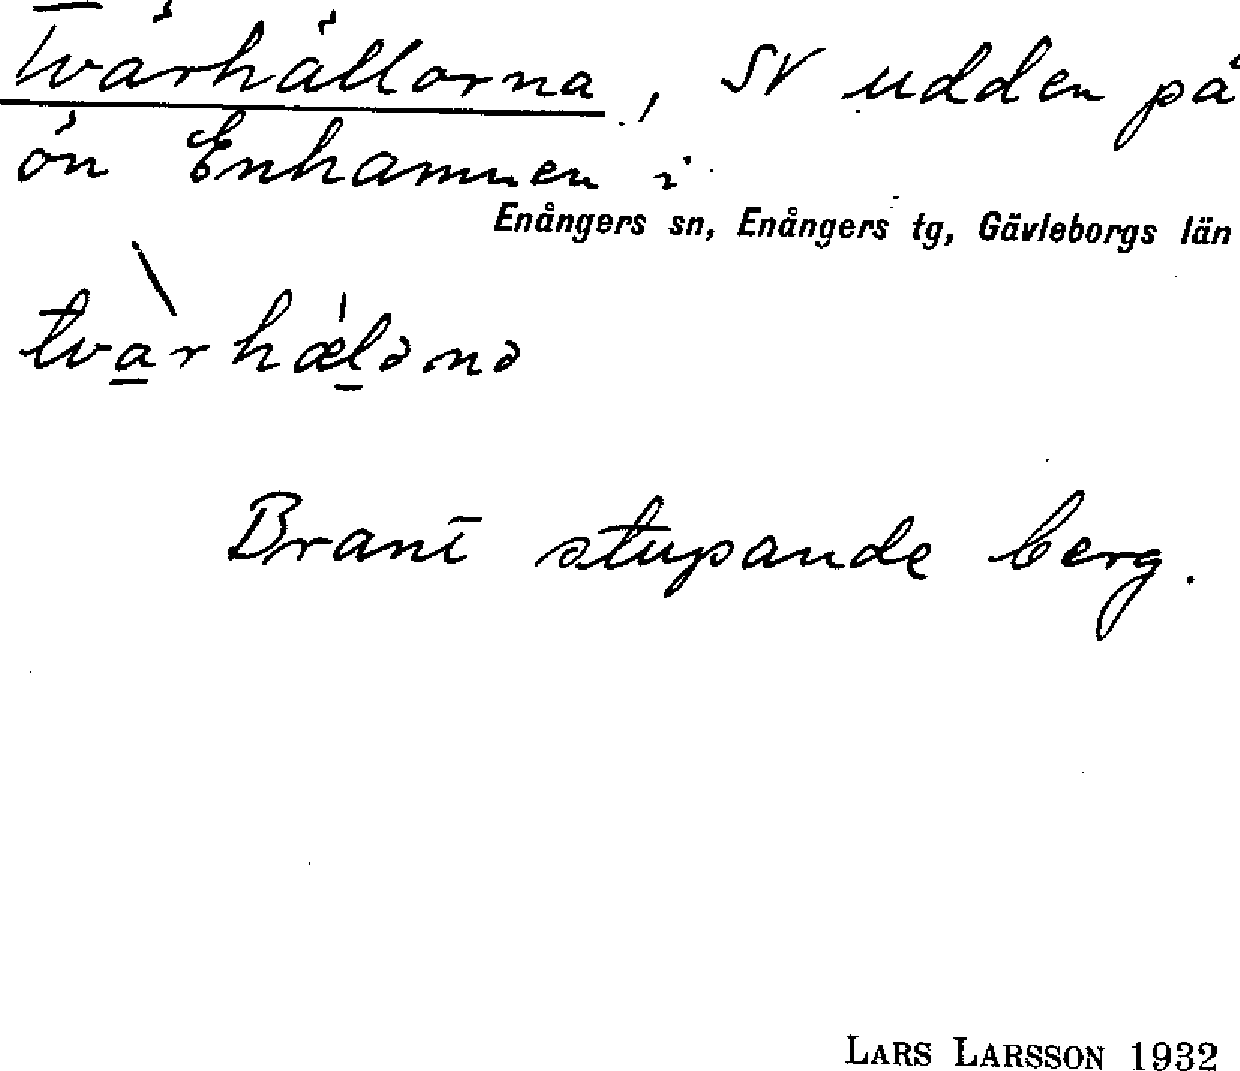 Tvärhällorna, SV udden på
ön Enhamnen i
Enångers sn, Enångers tg, Gävleborgs län
tvàrhǽlənə
Brant stupande berg.
LARS LARSSON 1932